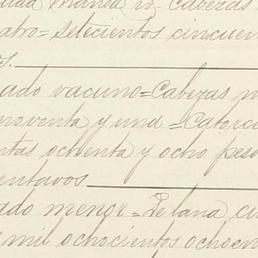 Cabezas
atro = setecientos cincuen
s.
ado vacuno = Cabezas
noventa y una = Catorce
ntas ochenta y ocho peso
entavos
ado menor = De lana
mil ochocientos ochoen